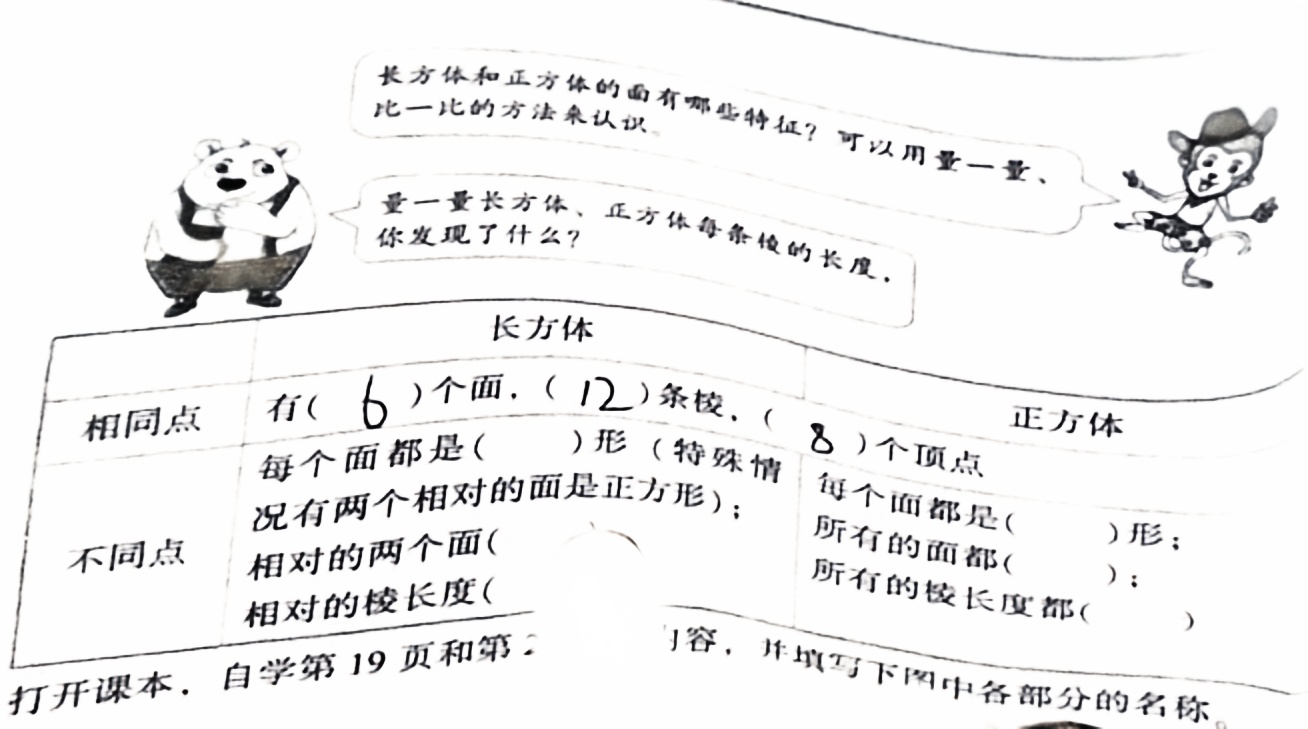 长方体和正方体的面有哪些特征？可以用量一量、
比一比的方法来认识。
量一量长方体、正方体每条棱的长度，
你发现了什么？
长方体
正方体
相同点
有( 6 )个面，( 12 )条棱，( 8 )个顶点
不同点
每个面都是( )形（特殊情
况有两个相对的面是正方形）；
相对的两个面(
相对的棱长度(
每个面都是( )形；
所有的面都( )；
所有的棱长度都( )
打开课本，自学第 19 页和第 2
内容，并填写下图中各部分的名称。